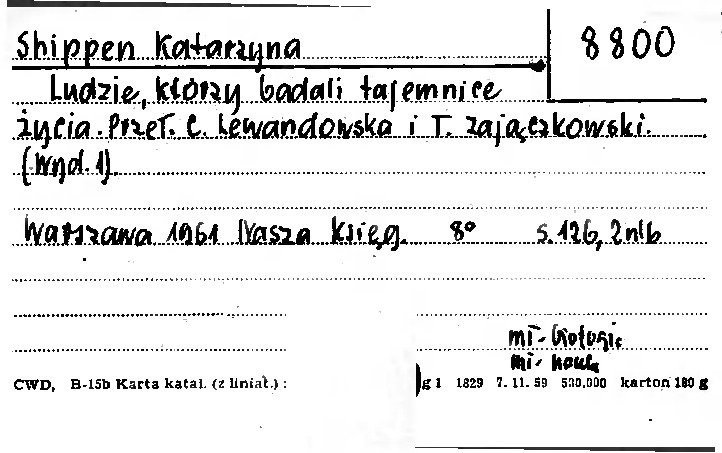 Shippen Katarzyna
8800
Ludzie, którzy badali tajemnice
życia. Przeł. C. Lewandowska i T. Zajączkowski.
(Wyd. 1).
Warszawa 1961 Nasza Księg. 8° s. 126, 2nlb
mł-biologia
mł-nauka
CWD, B-15b Karta katal. (z liniat.) : g 1 1829 7. 11. 59 500,000 karton 180 g